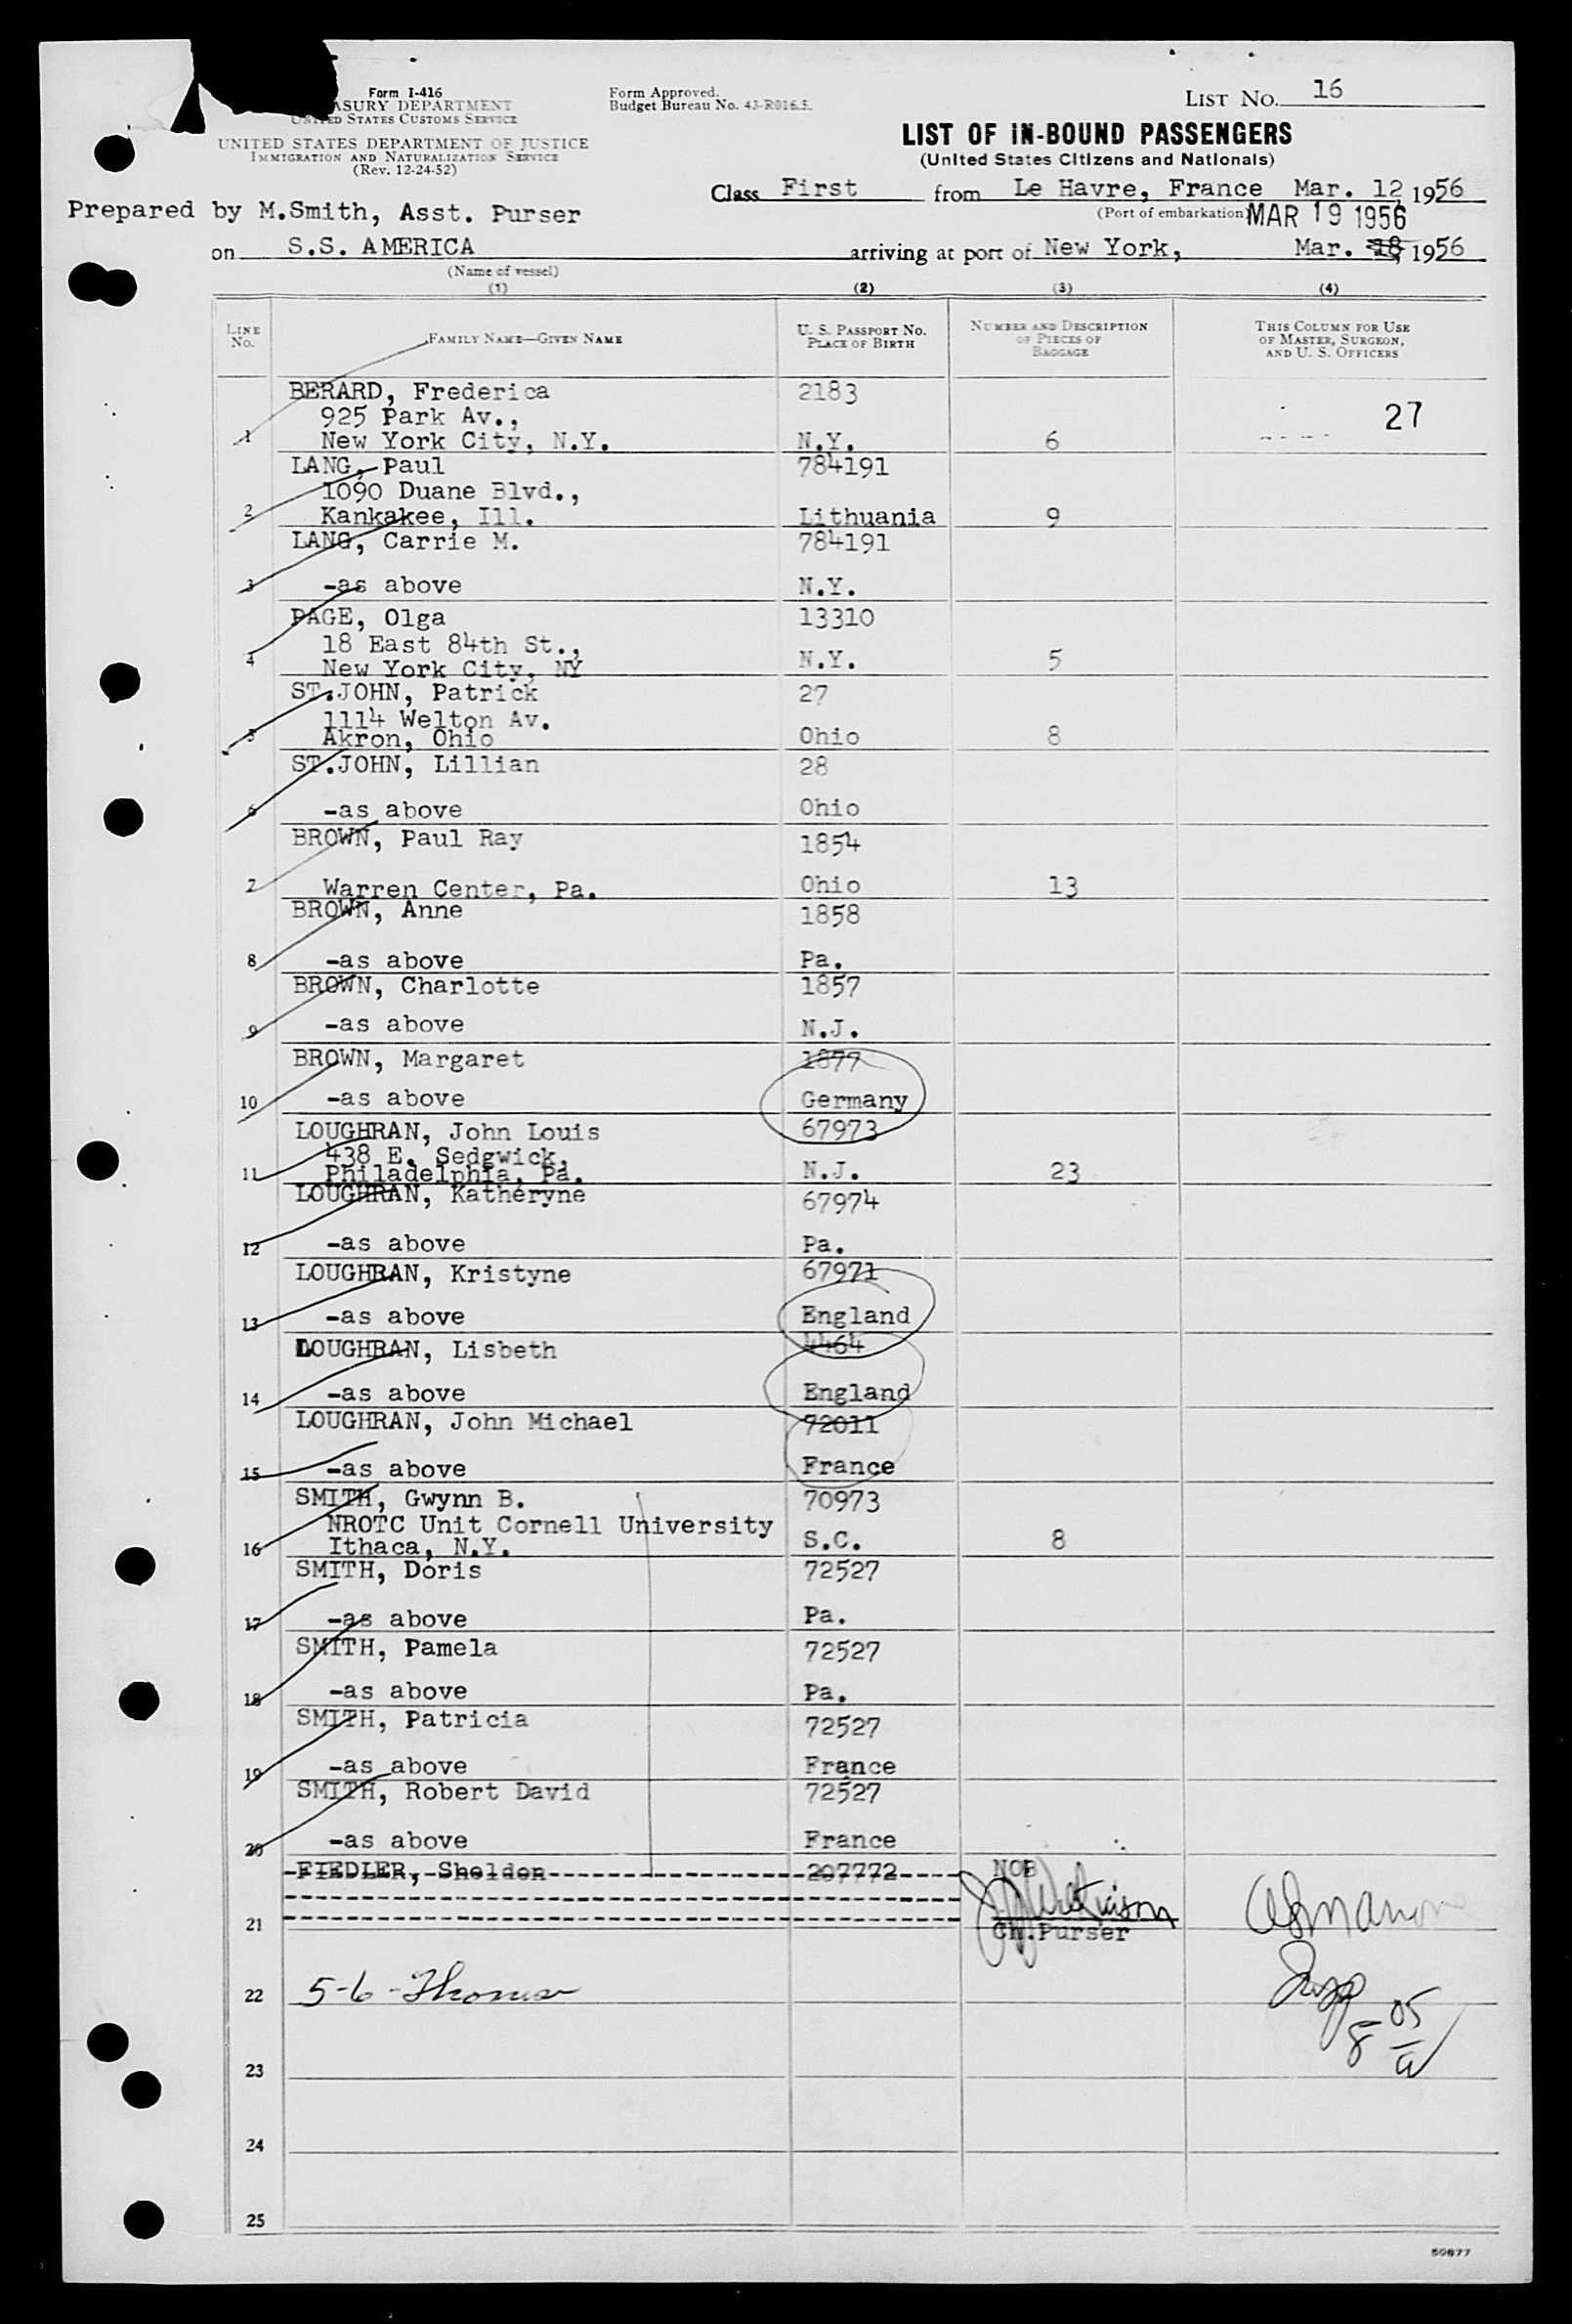 Form I-416
ASURY DEPARTMENT
UNITED STATES CUSTOMS SERVICE
UNITED STATES DEPARTMENT OF JUSTICE
IMMIGRATION AND NATURALIZATION SERVICE
(Rev. 12-24-52)
Form Approved.
Budget Bureau No. 43-R016.5.
LIST NO. 16
LIST OF IN-BOUND PASSENGERS
(United States Citizens and Nationals)
Class First from Le Havre, France Mar. 12, 1956
Prepared by M.Smith, Asst. Purser
(Port of embarkation) MAR 19 1956
on S.S. AMERICA arriving at port of New York, Mar. 18, 1956
(Name of vessel)
(1) (2) (3) (4)
LINE NO. FAMILY NAME—GIVEN NAME U. S. PASSPORT NO. PLACE OF BIRTH NUMBER AND DESCRIPTION OF PIECES OF BAGGAGE THIS COLUMN FOR USE OF MASTER, SURGEON, AND U. S. OFFICERS
BERARD, Frederica 2183
925 Park Av., 27
1 New York City, N.Y. N.Y. 6
LANG, Paul 784191
1090 Duane Blvd.,
2 Kankakee, Ill. Lithuania 9
LANG, Carrie M. 784191
3 -as above N.Y.
PAGE, Olga 13310
18 East 84th St.,
4 New York City, NY N.Y. 5
ST.JOHN, Patrick 27
1114 Welton Av.
5 Akron, Ohio Ohio 8
ST.JOHN, Lillian 28
6 -as above Ohio
BROWN, Paul Ray 1854
7 Warren Center, Pa. Ohio 13
BROWN, Anne 1858
8 -as above Pa.
BROWN, Charlotte 1857
9 -as above N.J.
BROWN, Margaret 1877
10 -as above Germany
LOUGHRAN, John Louis 67973
438 E. Sedgwick,
11 Philadelphia, Pa. N.J. 23
LOUGHRAN, Katheryne 67974
12 -as above Pa.
LOUGHRAN, Kristyne 67971
13 -as above England
LOUGHRAN, Lisbeth 4464
14 -as above England
LOUGHRAN, John Michael 72011
15 -as above France
SMITH, Gwynn B. 70973
NROTC Unit Cornell University
16 Ithaca, N.Y. S.C. 8
SMITH, Doris 72527
17 -as above Pa.
SMITH, Pamela 72527
18 -as above Pa.
SMITH, Patricia 72527
19 -as above France
SMITH, Robert David 72527
20 -as above France
FIEDLER, Sheldon 207772 NOB
21 Ch.Purser
22 5-6-Thomas
Insp
8 05
23
24
25
50877